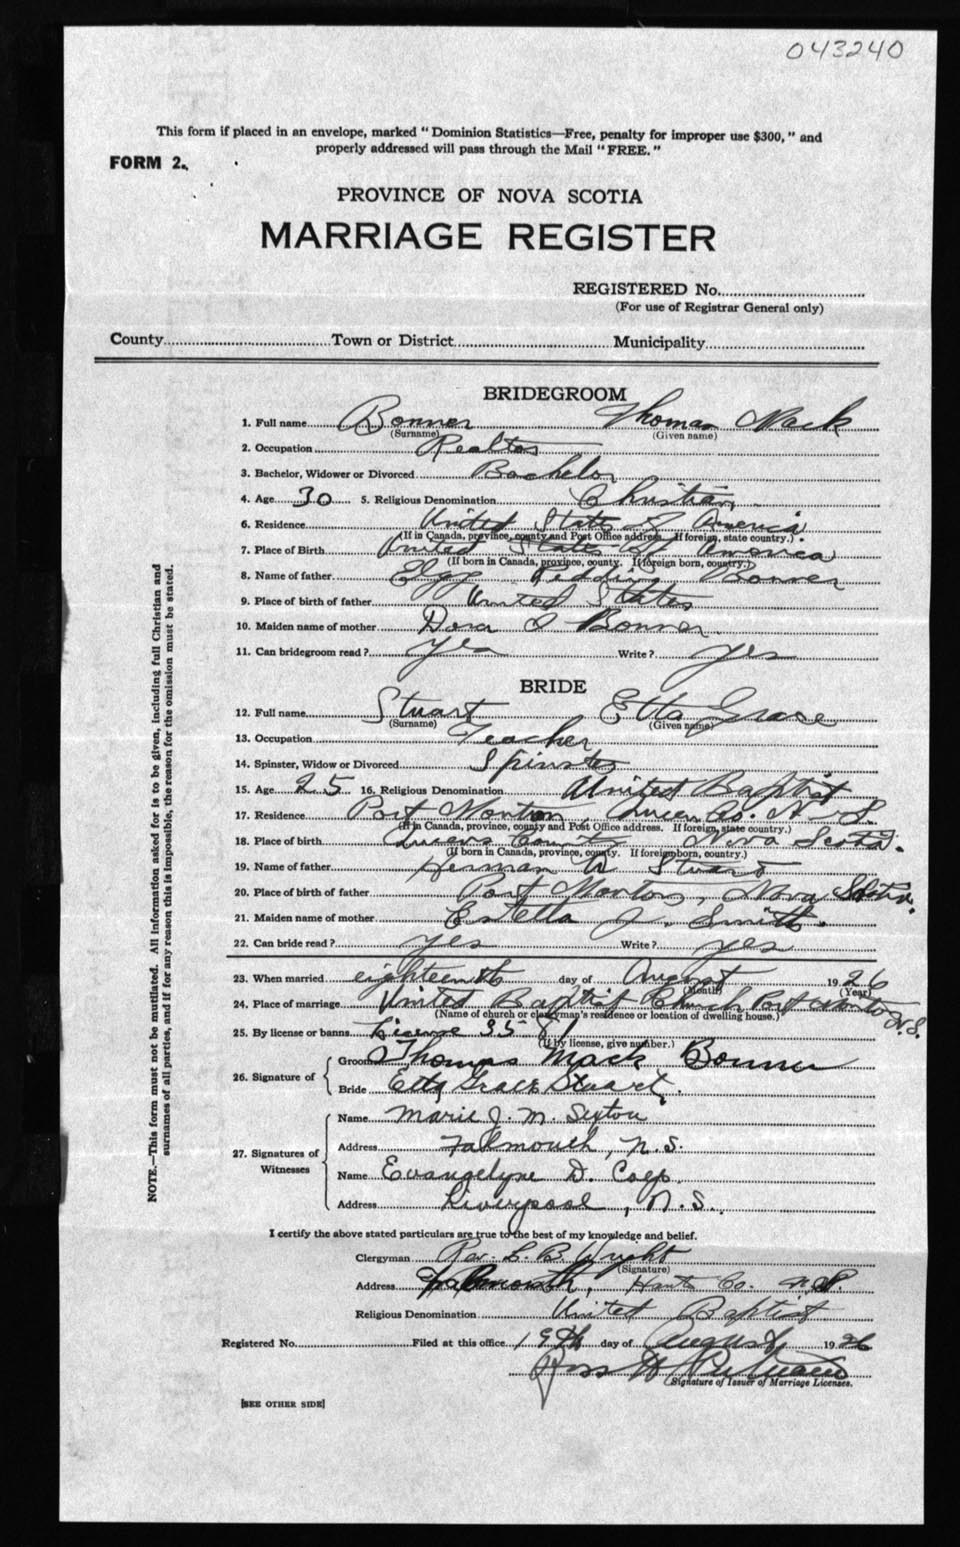 043240
This form if placed in an envelope, marked "Dominion Statistics—Free, penalty for improper use $300," and
properly addressed will pass through the Mail "FREE."
FORM 2.
PROVINCE OF NOVA SCOTIA
MARRIAGE REGISTER
REGISTERED No.
(For use of Registrar General only)
County Town or District Municipality
BRIDEGROOM
1. Full name Bonner Thomas Mack
(Surname) (Given name)
2. Occupation Realtor
3. Bachelor, Widower or Divorced Bachelor
4. Age 30 5. Religious Denomination Christian
6. Residence United States of America
(If in Canada, province, county and Post Office address. If foreign, state country.)
7. Place of Birth United States of America
(If born in Canada, province, county. If foreign born, country.)
8. Name of father Redding Bonner
9. Place of birth of father United States
10. Maiden name of mother Dora Bonner
11. Can bridegroom read? yes Write? yes
BRIDE
12. Full name Stuart Etta Grace
(Surname) (Given name)
13. Occupation Teacher
14. Spinster, Widow or Divorced Spinster
15. Age 25 16. Religious Denomination United Baptist
17. Residence Port Mouton, Queens Co. N.S.
(If in Canada, province, county and Post Office address. If foreign, state country.)
18. Place of birth Queens County Nova Scotia.
(If born in Canada, province, county. If foreign born, country.)
19. Name of father Herman A Stuart
20. Place of birth of father Port Mouton, Nova Scotia.
21. Maiden name of mother Estella J. Smith.
22. Can bride read? yes Write? yes
23. When married eighteenth day of August 1926
(Month) (Year)
24. Place of marriage United Baptist Church Port Mouton N.S.
(Name of church or clergyman's residence or location of dwelling house.)
25. By license or banns License
(If by license, give number.)
26. Signature of
Groom Thomas Mack Bonner
Bride Etta Grace Stuart.
27. Signatures of Witnesses
Name Marie J. M. Sexton
Address Falmouth, N.S.
Name Evangelyne D. Colp
Address Liverpool, N.S.
I certify the above stated particulars are true to the best of my knowledge and belief.
Clergyman Rev. L. B. Wright
(Signature)
Address Falmouth, Hants Co. N.S.
Religious Denomination United Baptist
Registered No. Filed at this office 19th day of August 1926
Signature of Issuer of Marriage Licenses.
[SEE OTHER SIDE]
NOTE.—This form must not be mutilated. All information asked for is to be given, including full Christian and
surnames of all parties, and if for any reason this is impossible, the reason for the omission must be stated.